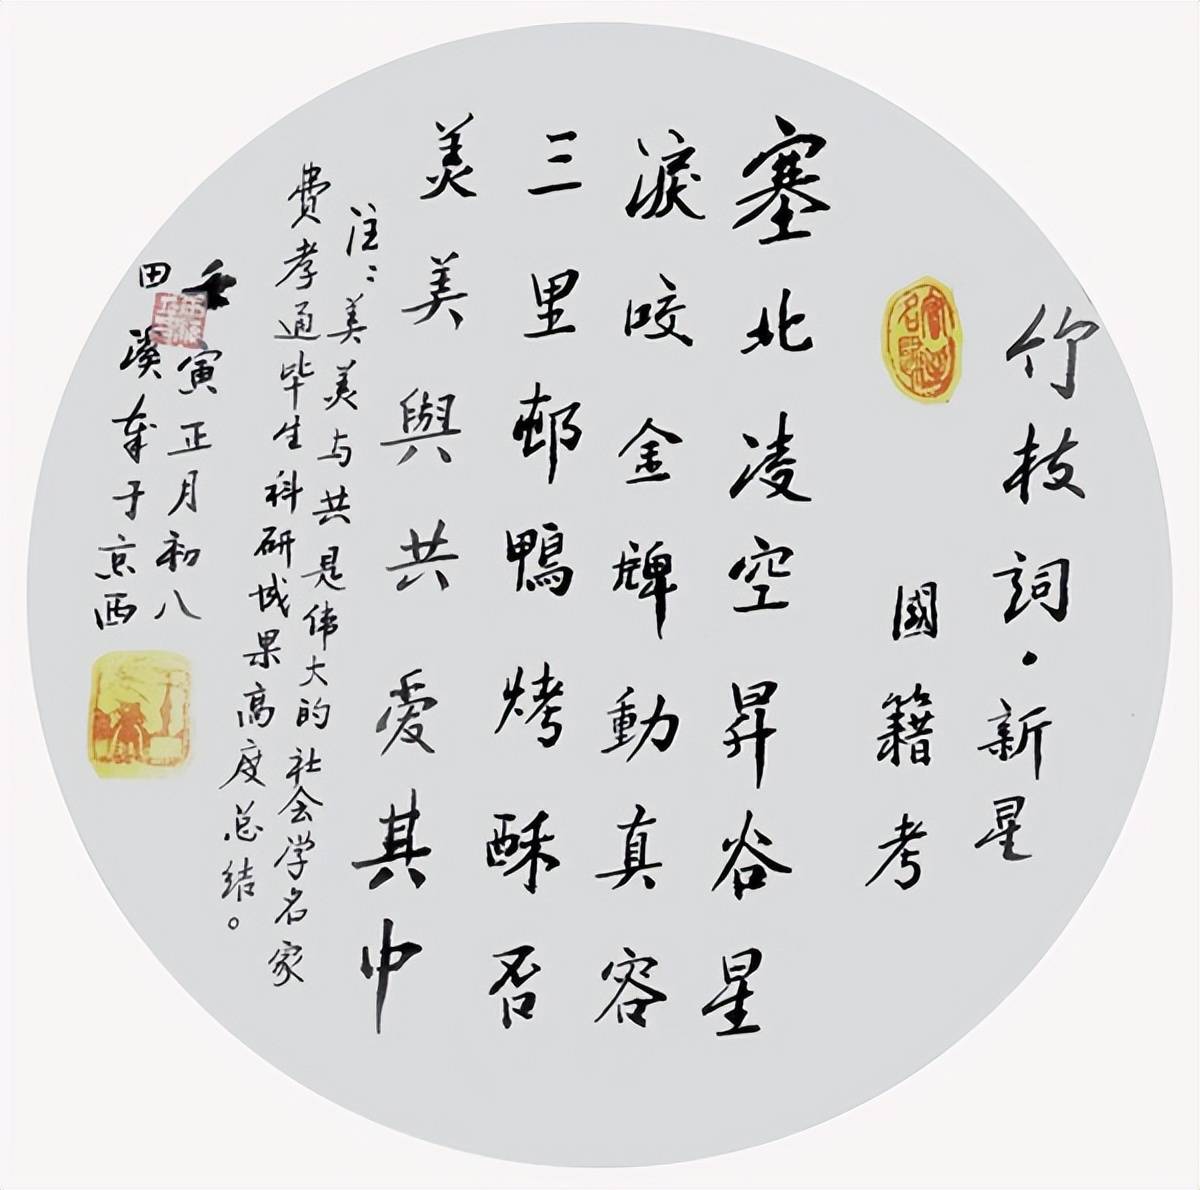 竹枝詞·新星
國籍考
塞北凌空昇谷星
淚咬金牌動真容
三里邨鴨烤酥否
美美與共愛其中
注:美美与共是伟大的社会学名家
費孝通毕生科研成果高度总结。
壬寅正月初八
田溪于京西